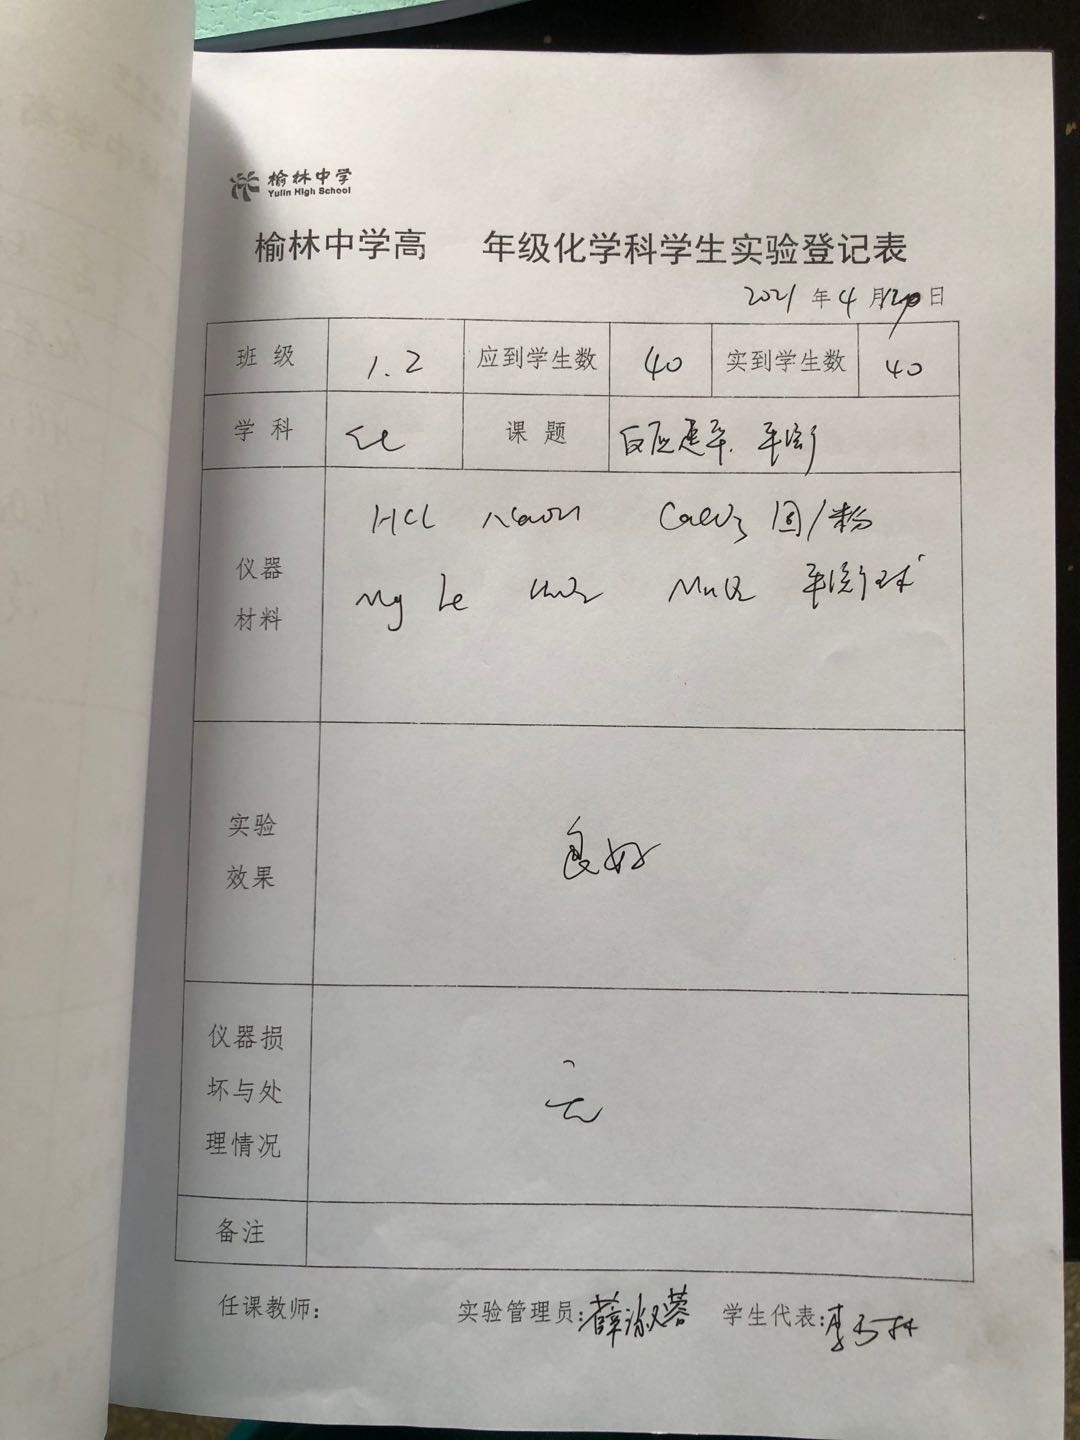 榆林中学
Yulin High School
榆林中学高 年级化学科学生实验登记表
2021 年 4 月 20 日
班 级 1.2 应到学生数 40 实到学生数 40
学 科 化 课 题 反应速率. 平衡
HCl NaOH CaCO3 固/粉
仪器
材料
Mg Fe MnO2 平衡球
实验
效果
良好
仪器损
坏与处
理情况
无
备注
任课教师: 实验管理员:薛淑蓉 学生代表:李